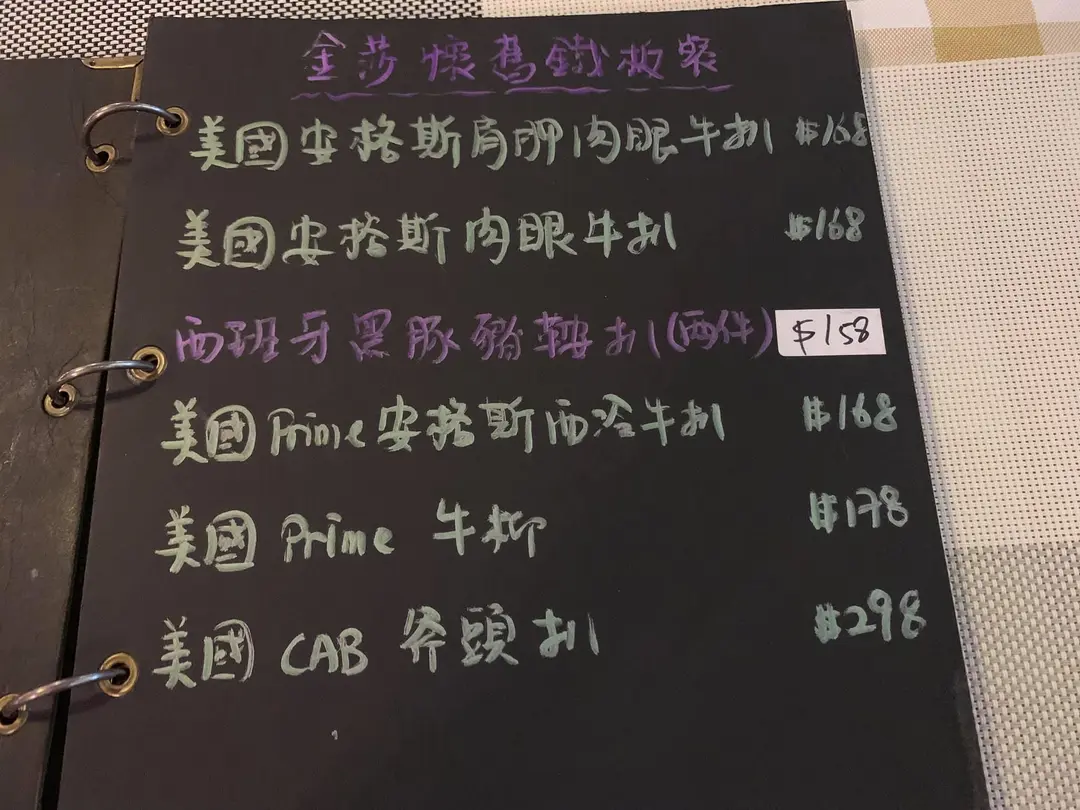 金莎懷舊鐵板餐
美國安格斯肩胛肉眼牛扒 $168
美國安格斯肉眼牛扒 $168
西班牙黑豚豬鞍扒(兩件) $158
美國Prime安格斯西冷牛扒 $168
美國Prime 牛柳 $178
美國 CAB 斧頭扒 $298